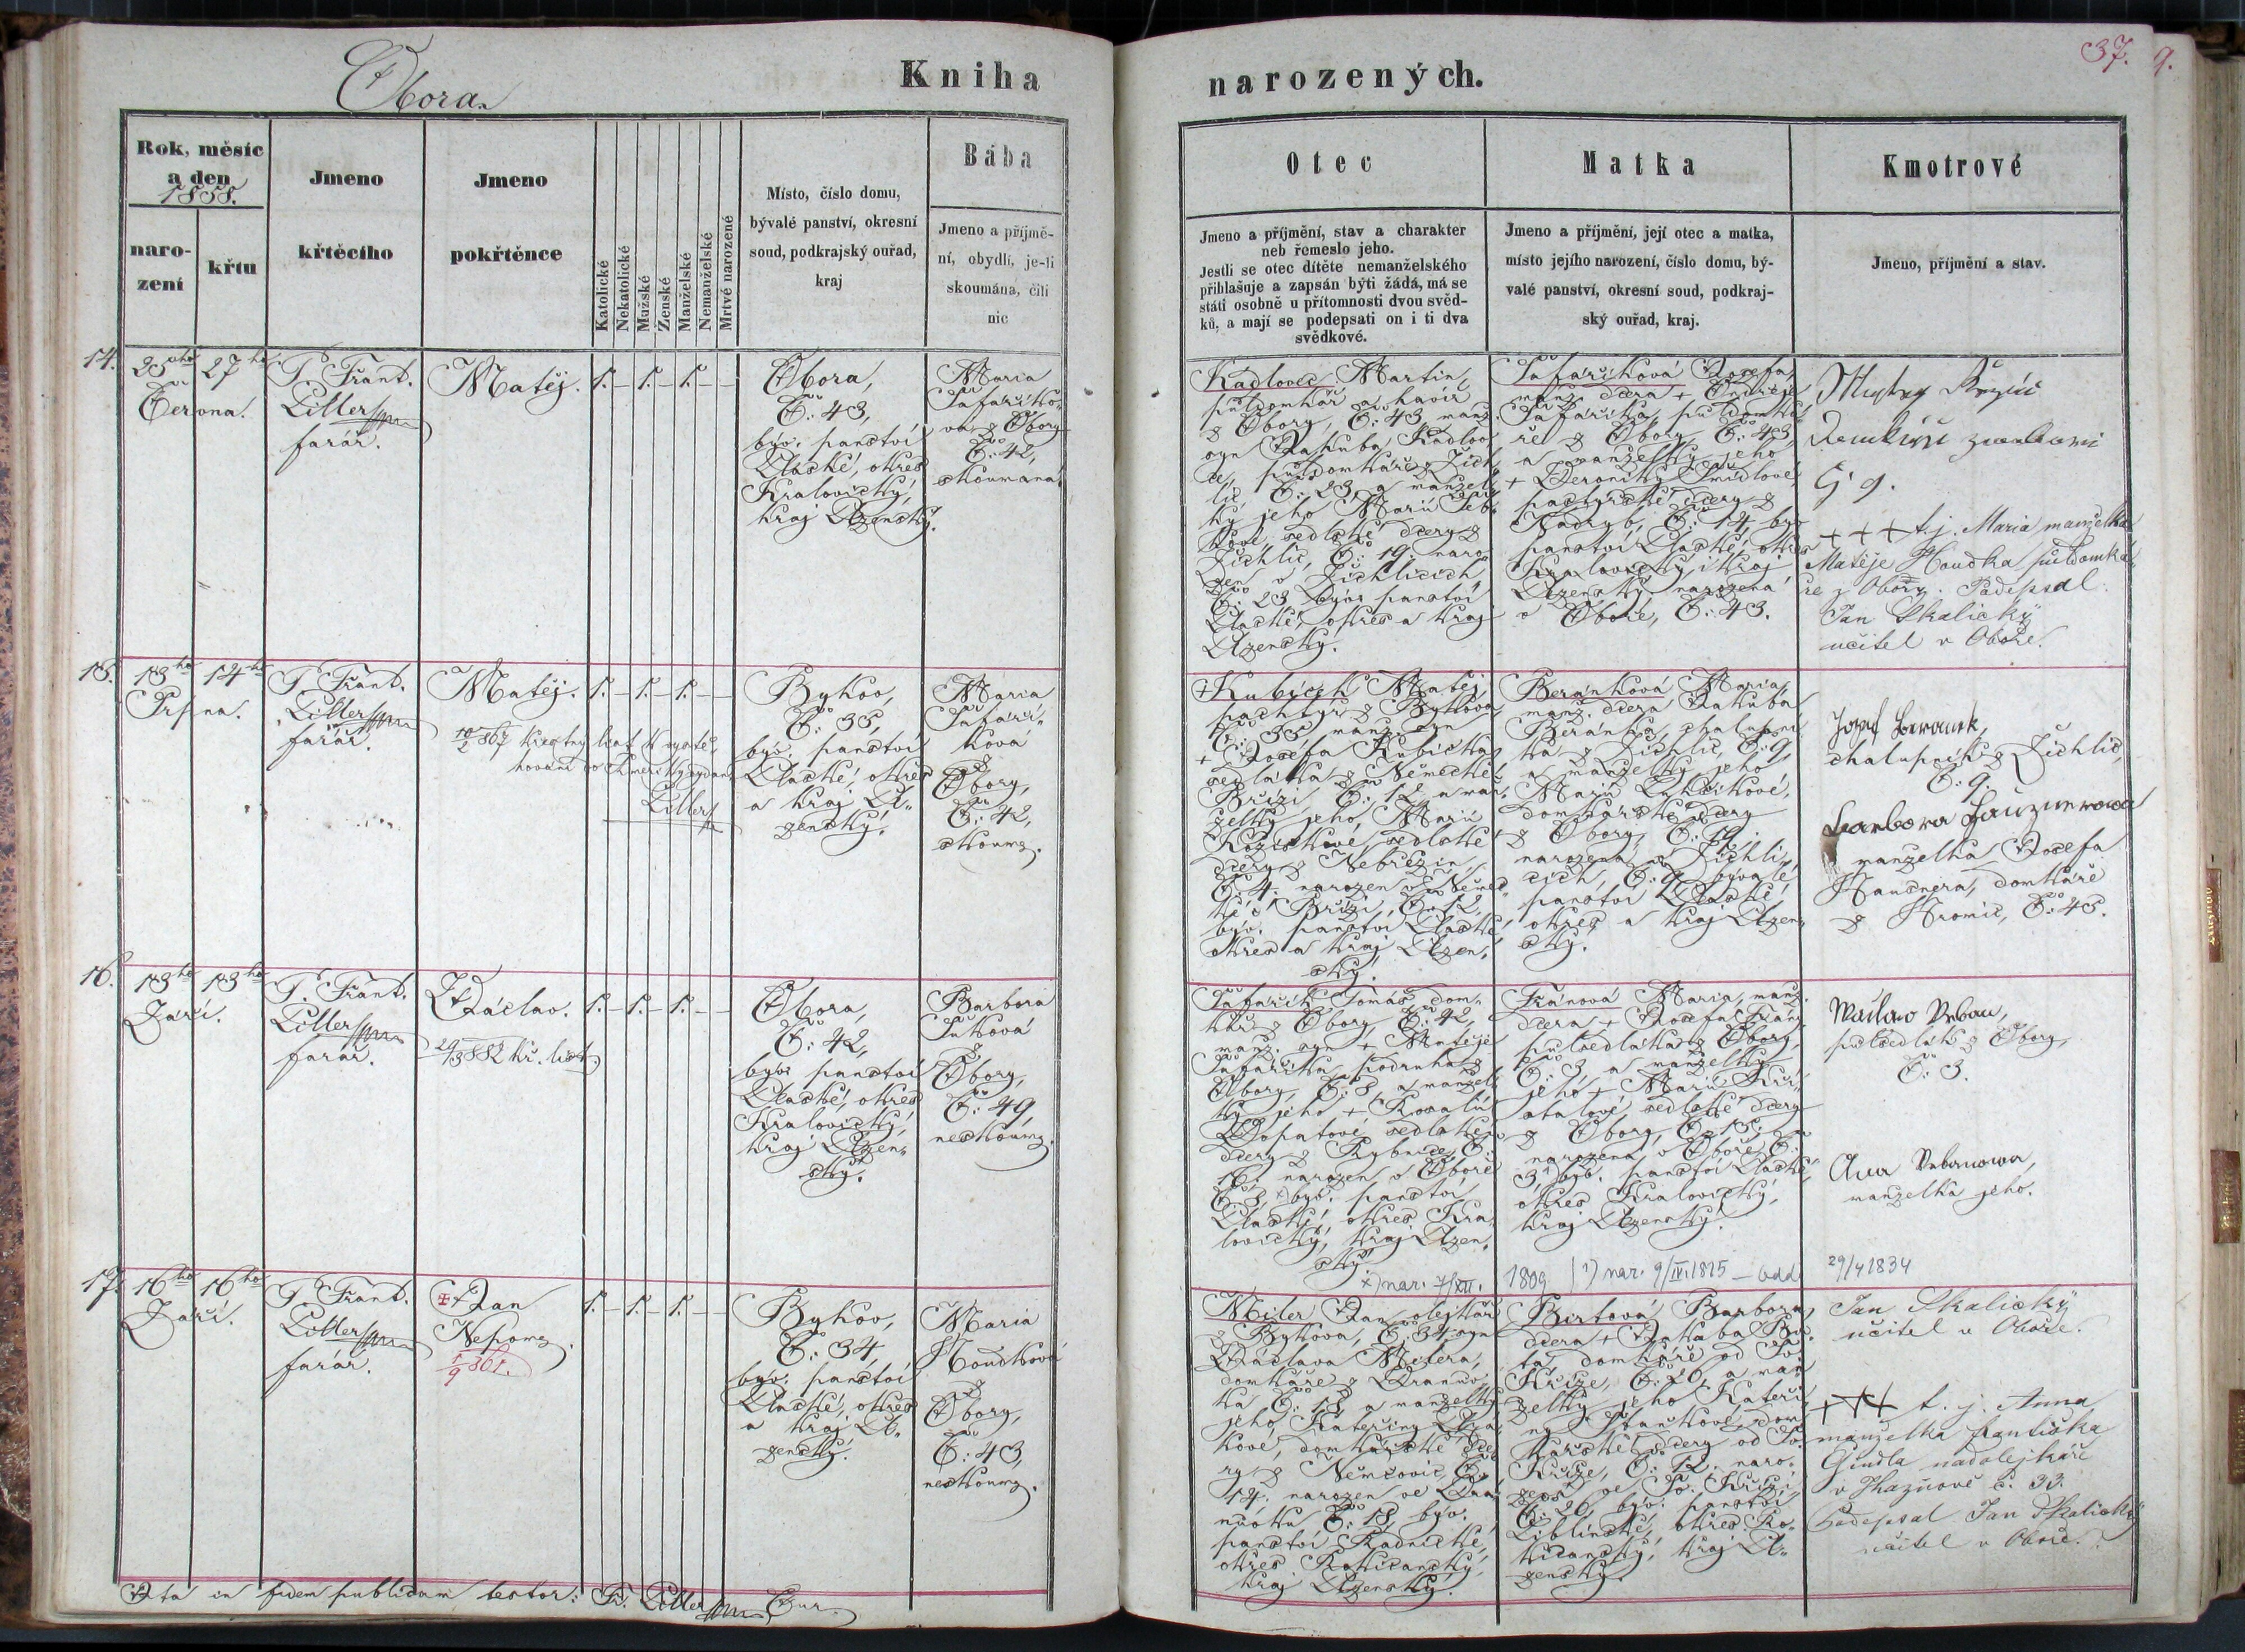 Obora.
Kniha
narozených.
37. 9.
Rok, měsíc
a den
1858.
naro-
zení
křtu
Jmeno
křtěcího
Jmeno
pokřtěnce
Katolické
Nekatolické
Mužské
Ženské
Manželské
Nemanželské
Mrtvé narozené
Místo, číslo domu,
bývalé panství, okresní
soud, podkrajský ouřad,
kraj
Bába
Jmeno a příjmě-
ní, obydlí, je-li
skoumána, čili
nic
Otec
Jmeno a příjmění, stav a charakter
neb řemeslo jeho.
Jestli se otec dítěte nemanželského
přiblašuje a zapsán býti žádá, má se
státi osobně u přítomnosti dvou svěd-
ků, a mají se podepsati on i ti dva
svědkové.
Matka
Jmeno a příjmění, její otec a matka,
místo jejího narození, číslo domu, bý-
valé panství, okresní soud, podkraj-
ský ouřad, kraj.
Kmotrové
Jmeno, příjmění a stav.
14.
25ho 27ho
Června.
P. Frant.
Liller
farář.
Matěj.
1. – 1. – 1. – –
Obora,
Čo: 43,
býv. panství
Plaské, okres
Kralovický,
kraj Plzenský.
Maria
Šafaříko-
va z Obory
Čo: 42,
skoumaná.
Kadlovec Martin,
půldomkář a havíř
z Obory, Čo: 43 manž.
syn Jakuba Kadlov-
ce, půldomkáře z Žich-
lic Čo: 23 a manžel-
ky jeho Marii
sedlské dcery z
Žichlic, Čo: 19. naro-
zen v Žichlicích
Čo: 23 býv. panství
Plaské, okres a kraj
Plzenský.
Šafaříková Josefa
manž. dcera + Ondřeje
Šafaříka, půldomká-
ře z Obory Čo: 43,
a manželky jeho
+ Veroniky Šmídlové
pachtýřské dcery z
Nadryb, Čo: 14, býv.
panství Plaské, okres
Kralovický, kraj
Plzenský narozená
v Oboře, Čo: 43.
+ + + t. j. Maria manželka
Matěje Houdka půldomká-
ře z Obory. Podepsal
Jan Skalický
učitel v Oboře.
15.
13ho 14ho
Srpna.
P. Frant.
Liller
farář.
Matěj.
křestný list k vystě-
hování do Ameriky vydán
Liller
1. – 1. – 1. – –
Bykov,
Čo: 35,
býv. panství
Plaské, okres
a kraj Pl-
zenský.
Maria
Šafaří-
ková
z
Obory,
Čo: 42,
skoumz.
+ Kubíček Matěj,
pachtýř z Bykova
Čo: 35, manž. syn
+ Josefa Kubíčka
sedláka z Německé
Břízi, Čo: 12 a man-
želky jeho, Marii
sedlské
dcery z Nebřezin,
Čo: 4. narozen v Němec-
ké Břízi, Čo: 12,
býv. panství Plaské
okres a kraj Plzen-
ský.
Beránková Maria,
manž. dcera Jakuba
Beránka, chalupní-
ka z Žichlic, Čo: 9,
a manželky jeho
Marii
domkářské dcery
z Obory,
narozena v Žichli-
cích, Čo: 9 bývalé
panství Plaské,
okres a kraj Plzen-
ský.
Josef Beranek,
chalupník z Žichlic,
Čo: 9.
Barbora
manželka Josefa
Hausnera, domkáře
z Hromic, Čo: 45.
16.
13ho 13ho
Září.
P. Frant.
Liller
farář.
Václav.
kř. list.
1. – 1. – 1. – –
Obora,
Čo: 42,
býv. panství
Plaské, okres
Kralovický,
kraj Plzen-
ský.
Barbora
z
Obory,
Čo: 49,
neskoumz.
Šafařík Tomáš, dom-
kář z Obory, Čo: 42,
manž. syn + Matěje
Šafaříka, podruha z
Obory, a manžel-
ky jeho + Rosalii
sedlské
dcery z Rybnice, Čo:
16. narozen v Oboře
Čo: 3, x) býv. panství
Plaské, okres Kra-
lovický, kraj Plzen-
ský.
Maria, manž.
dcera + Josefa
půlsedláka z Obory,
Čo: 3, a manželky
jeho + Marii
sedlské dcery
z Obory, Čo: 15,
narozena v Oboře, Čo:
3, býv. panství Plaské,
okres Kralovický,
kraj Plzenský.
Waclaw Urban,
půlsedlák z Obory,
Čo: 3.
Ana Urbanowa,
manželka jeho.
x) nar. 7/XII. 1809 1) nar. 9/IV.1815 – odd 29/4 1834
17.
16ho 16ho
Září.
P. Frant.
Liller
farář.
+ Jan
Nepomz.
1/9 861.
1. – 1. – 1. – –
Bykov,
Čo: 34,
býv. panství
Plaské, okres
a kraj Pl-
zenský.
Maria
Houdková
z
Obory,
Čo: 43,
neskoumz.
Miler Jan, olejkář
z Bykova, Čo: 34, syn
Václava Milera,
domkáře z
Čo: 18, a manželky
jeho Kateřiny
domkářské dce-
ry z Němčovic, Čo:
14. narozen ve
Čo: 18, býv.
panství Radnické,
okres Rokicanský,
kraj Plzenský.
Birtová Barbora,
dcera + Jakuba Bir-
ta, domkáře od Sv.
Kříže, Čo: 26, a man-
želky jeho Kateři-
ny dom-
kářské dcery od Sv.
Kříže, Čo: 12. naro-
zena ve Sv. Kříži,
Čo: 26, býv. panství
Liblínské, okres Ro-
kicanský, kraj Pl-
zenský.
Jan Skalický
učitel v Oboře.
+++ t. j. Anna,
manželka Františka
nadolejkáře
v Kaznově č. 33.
Podepsal Jan Skalický
učitel v Oboře.
Ita in fidem publicam testor: Fr. Liller